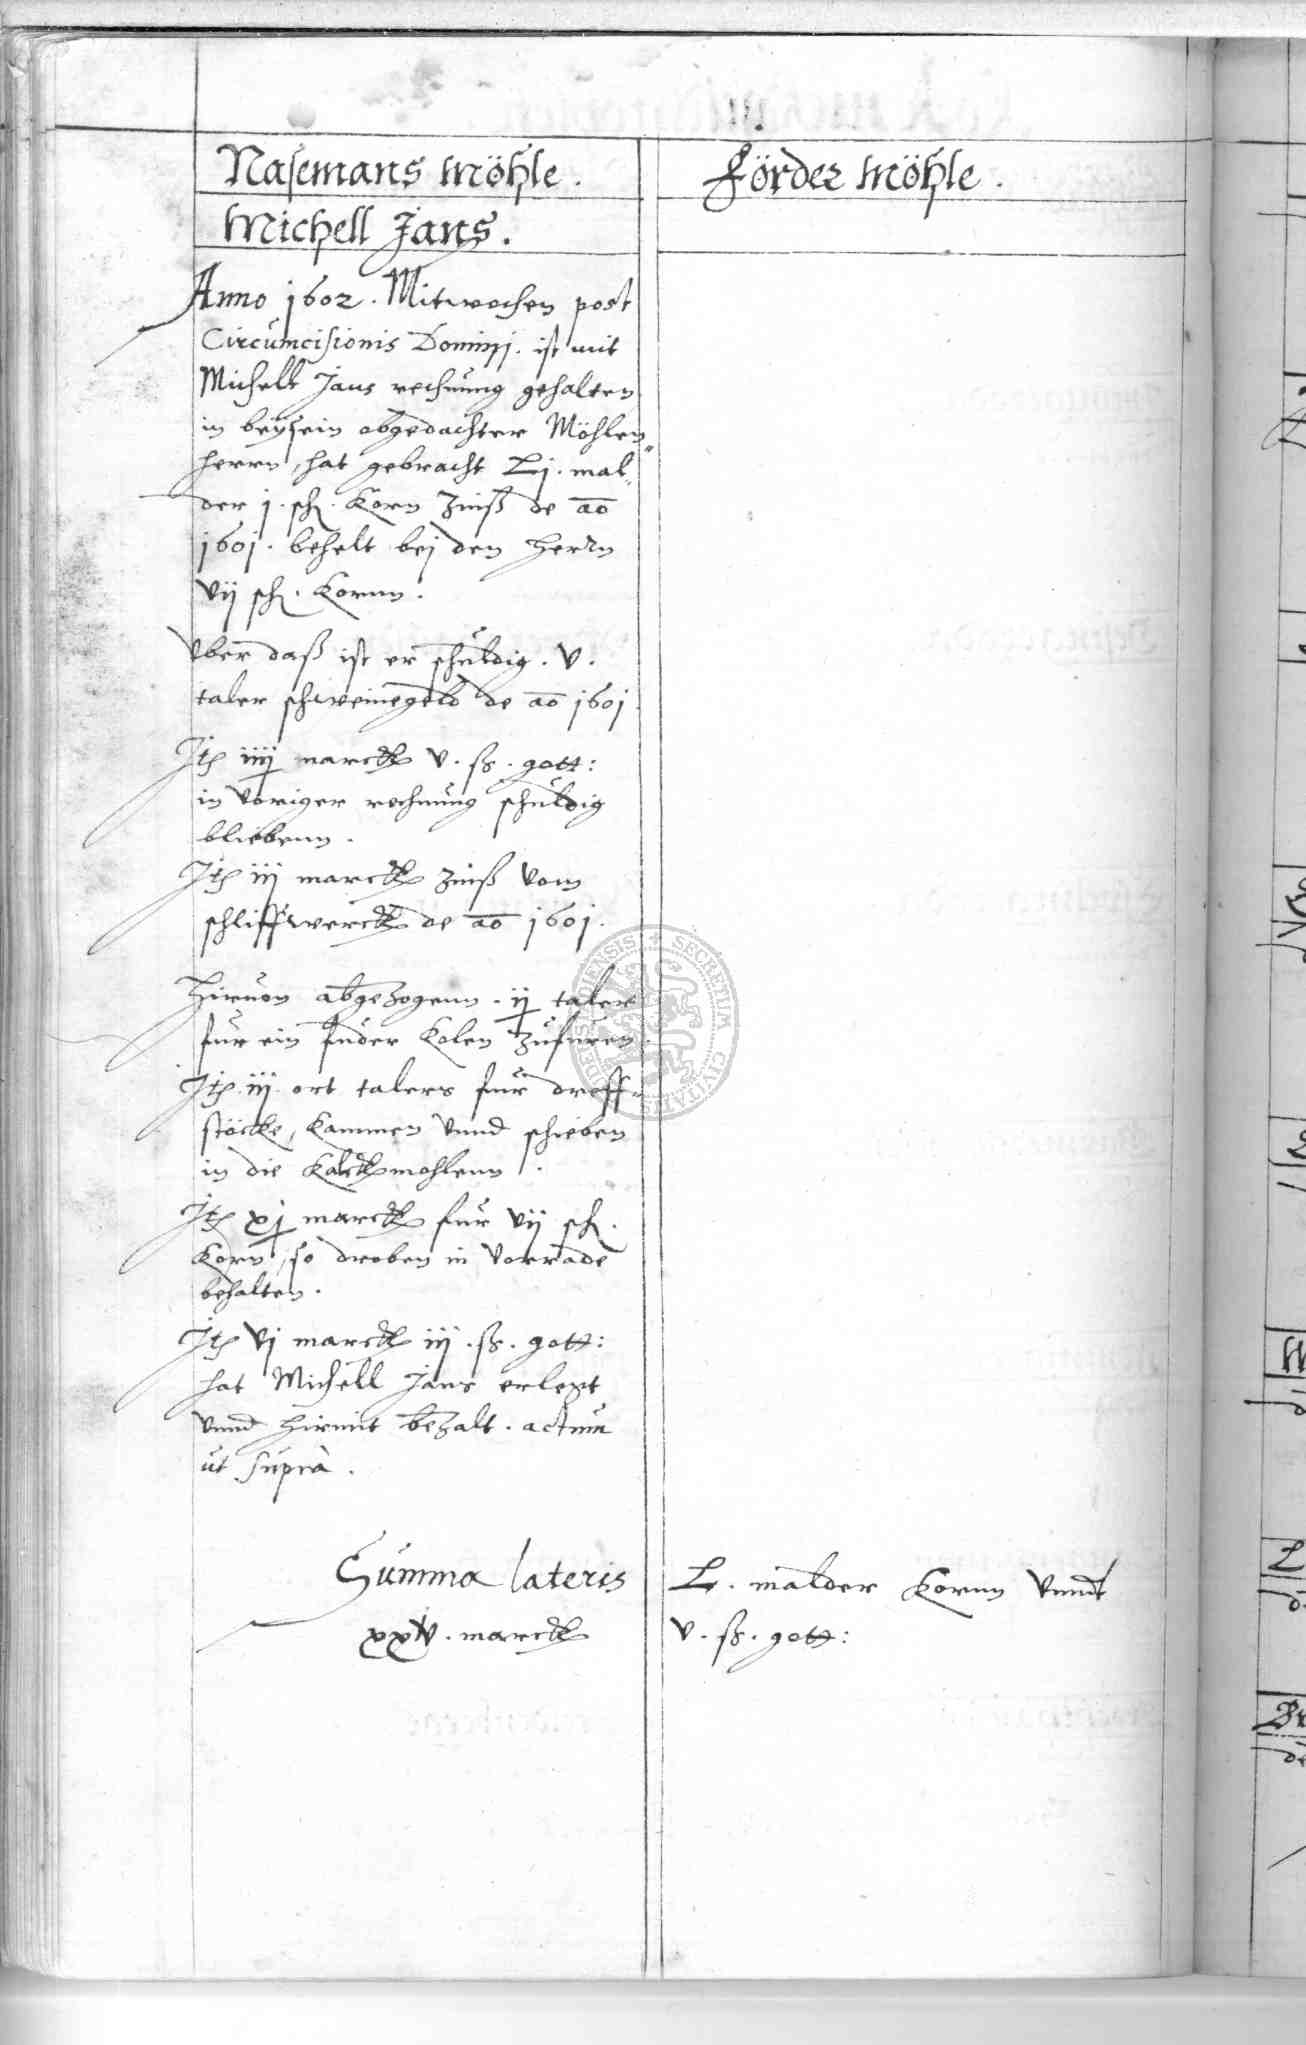 Nasemans Möhle.
Michell Jans.
Anno 1602. Mitwochen post
Circumcisionis Dominj. ist mit
Michell Jans rechnung gehalten
in beysein obgedachter Möhlen-
herrn, hat gebracht Lj. mal-
der j. sch. Korn Zinß de ao
1601. behelt bej den Herrn
vij sch. Kornn.
Vber daß ist er schuldig. v.
taler schweinegeld de ao 1601
Itz iiij marck v. ß. gott:
in voriger rechnung schuldig
bliebenn.
Itz iij marck Zinß vom
schliffwerck de ao 1601.
Hiruon abgezogenn. ij taler
fur ein fuder Kolen zufuren
Itz. iij. ort talers fur
stöcke, Kammen vnnd schieben
in die mohlenn.
Itz xj marck fur vij sch.
Korn, so droben in vorrade
behalten.
Itz vj marck iij. ß. gott:
hat Michell Jans erlegt
vnnd hirmit bezalt. actum
ut supra.
Förder Möhle.
Summa lateris L. malder Kornn vnndt
xxiv. marck v. ß. gott:
SECRETUM CIVITATIS